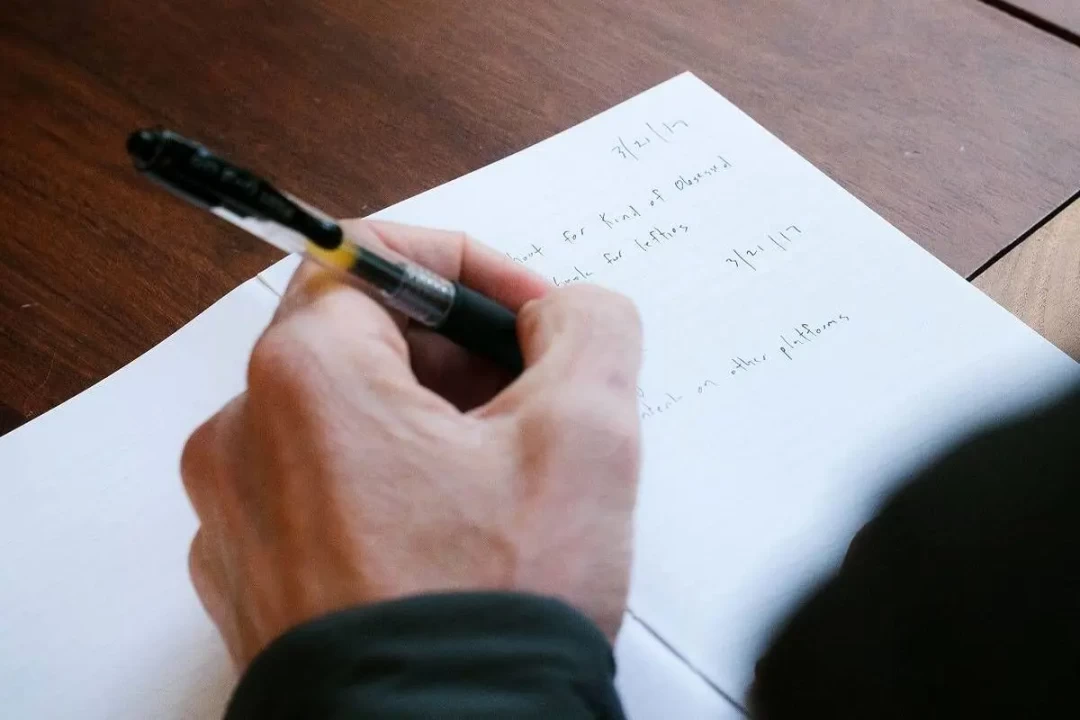 3/21/17
for Kind of Obsessed
for lefties
3/21/17
on other platforms